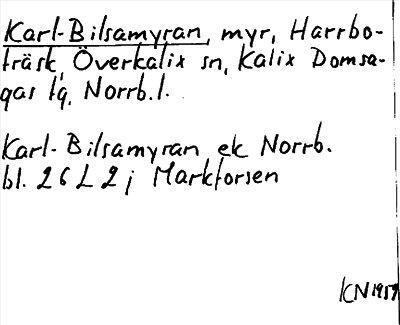 Karl-Bilsamyran, myr, Harrbo-
träsk, Överkalix sn, Kalix Domsa-
gas lg, Norrb.l.
Karl-Bilsamyran ek Norrb.
bl. 26 L 2 j Markforsen
KN 1959